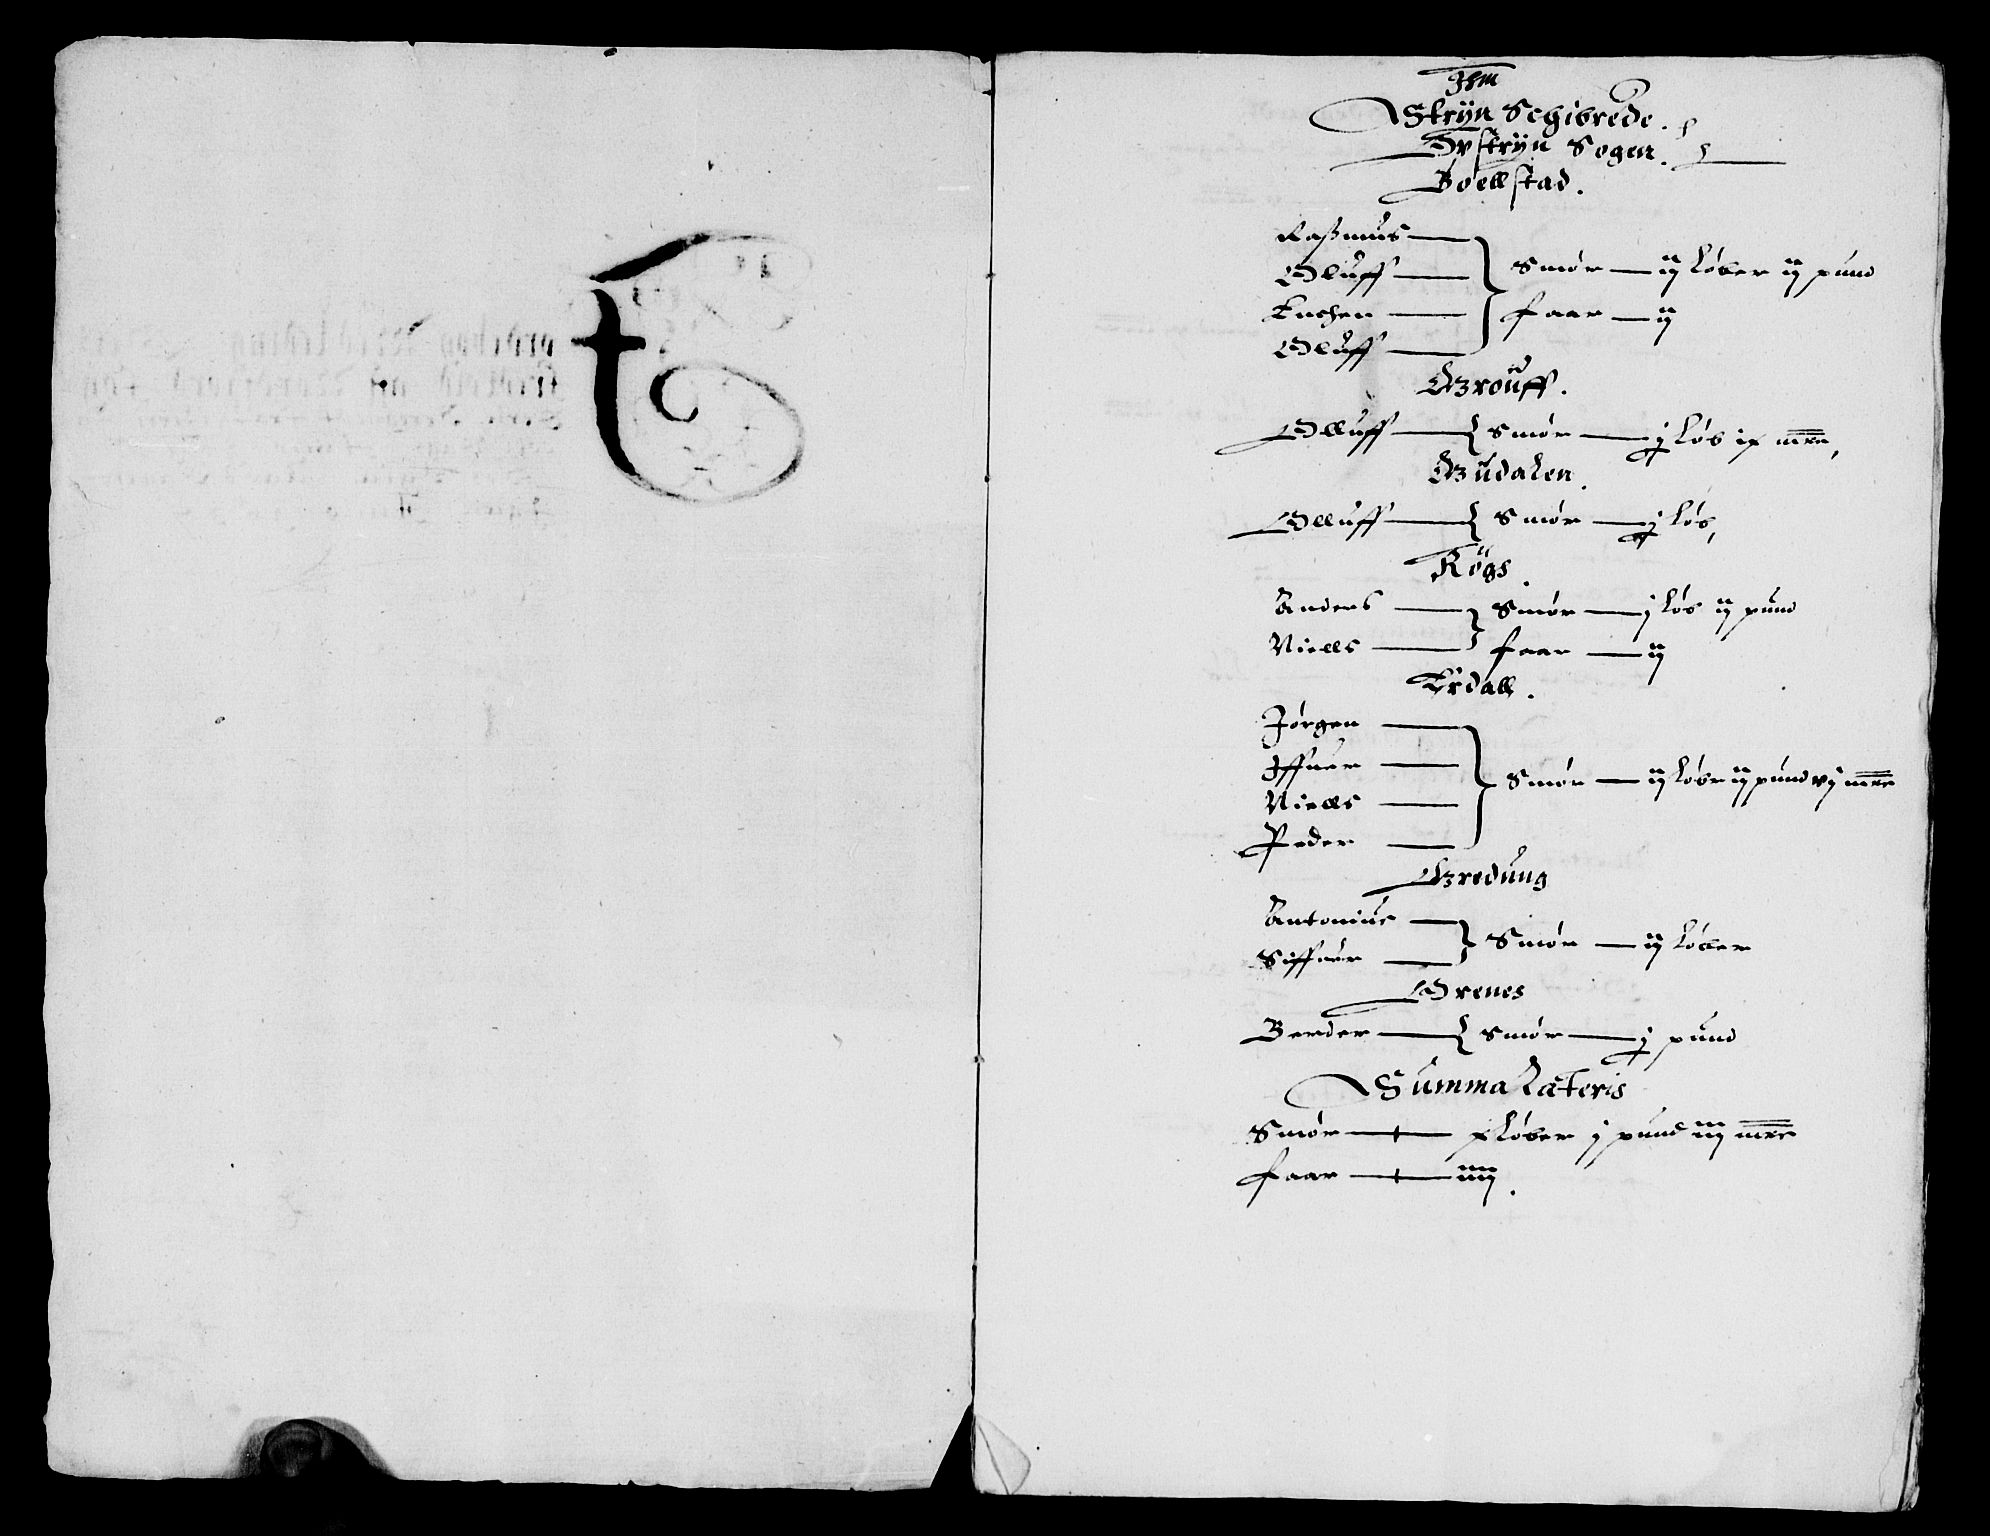 Jhm
Strÿn Schibrede.
Opstrÿn Sogen.
Boellstad.
Raszmus
Oluff
Knchen
Oluff
Smør — ij løber ij pund
faar — ij
Grouff.
Olluff — Smør — j løb ix mrc,
Gudalen.
Olluff — Smør — j løb,
Rögs.
Anders
Niells
Smør — j løb ij pund
faar — ij
Erdall.
Jörgen
Iffuer
Niells
Peder
Smør — ij løber ij pund vj mrc
Gredung
Antonius
Siffuer
Smør — ij løber
Grenes
Berder — Smør — j pund
Summa Lateris
Smør — x løber j pund iij mrc
faar — iiij.